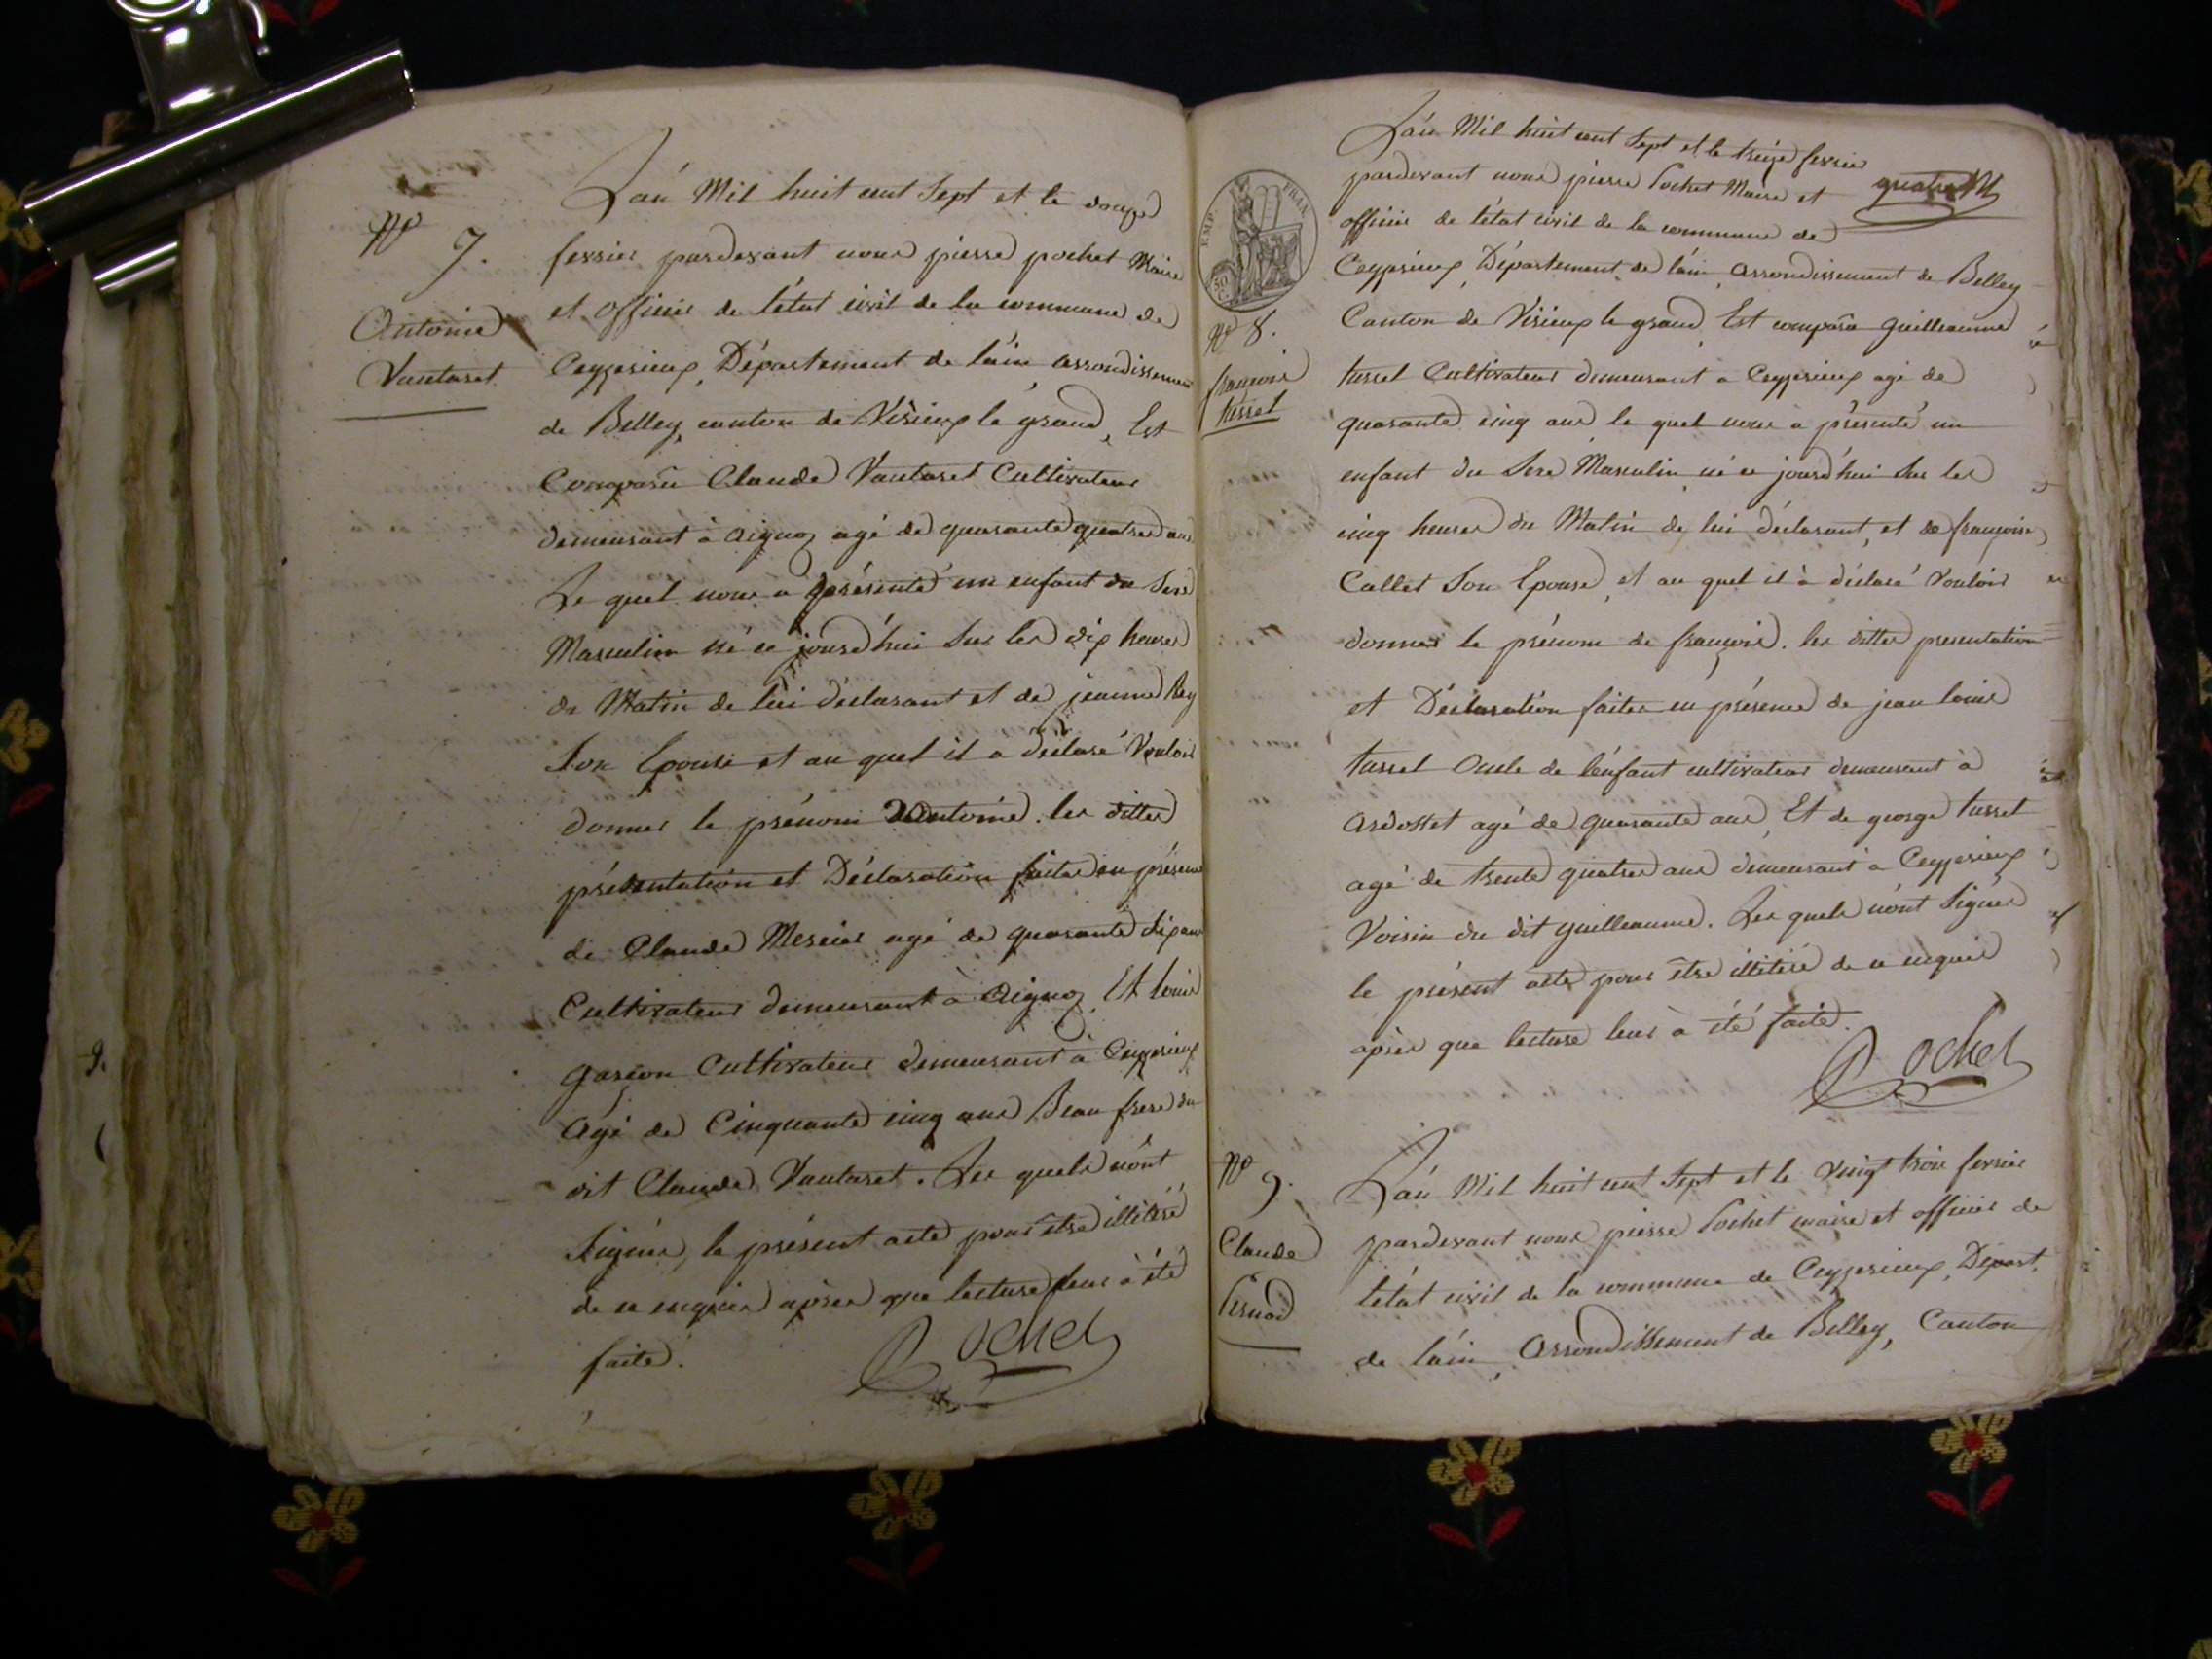 N° 7.
Antoine
Vautaret
L'an Mil huit cent Sept et le douze
fevrier pardevant nous pierre pochet Maire
et officier de l'état civil de la commune de
Ceyzerieux, Département de l'ain arrondissement
de Belley, canton de Virieux le grand, Est
Comparu Claude Vautaret Cultivateur
demeurant à aignoz agé de quarante quatre ans
Le quel nous a présenté un enfant du Sexe
Masculin né ce jourd'hui Sur les dix heures
du Matin de lui déclarant et de jeanne Rey
Son Epouse et au quel il a déclaré Vouloir
donner le prénom d'Antoine. les dittes
présentation et Déclaration faites en présence
de Claude Mercier agé de quarante six ans
Cultivateur demeurant à Aignoz, Et louis
garçon Cultivateur demeurant à Ceyzerieux
Agé de Cinquante cinq ans Beau frere du
dit Claude Vautaret. Les quels n'ont
Signés, le présent acte pour être illitéré
de ce enquis après que lecture leur à été
faite.
Pochet
EMP. FRAN.
50 C.
L'an Mil huit cent Sept et le treize fevrier
pardevant nous pierre Pochet Maire et
officier de l'état civil de la commune de
Ceyzerieux, Département de l'ain, arrondissement de Belley
Canton de Virieux le grand, Est comparu guilleaume
N° 8.
françois
tusset
tusset Cultivateur demeurant a Ceyzerieux agé de
quarante cinq ans, le quel nous à présenté un
enfant du Sexe Masculin né ce jourd'hui Sur les
cinq heures du Matin de lui déclarant, et de françoise
Callet Son Epouse, et au quel il à déclaré Vouloir
donner le prénom de françois. les dittes presentation
et Déclaration faites en présence de jean louis
tusset Oncle de l'enfant cultivateur demeurant à
Ardosset agé de quarante ans, Et de george tusset
agé de trente quatre ans demeurant à Ceyzerieux
Voisin du dit guilleaume. Les quels n'ont Signés
le présent acte pour être illitéré de ce enquis
après que lecture leur à été faite.
Pochet
N° 9.
Claude
L'an Mil huit cent Sept et le Vingt trois fevrier
pardevant nous pierre Pochet maire et officier de
l'état civil de la commune de Ceyzerieux, Départ.
de l'ain, Arrondissement de Belley, Canton